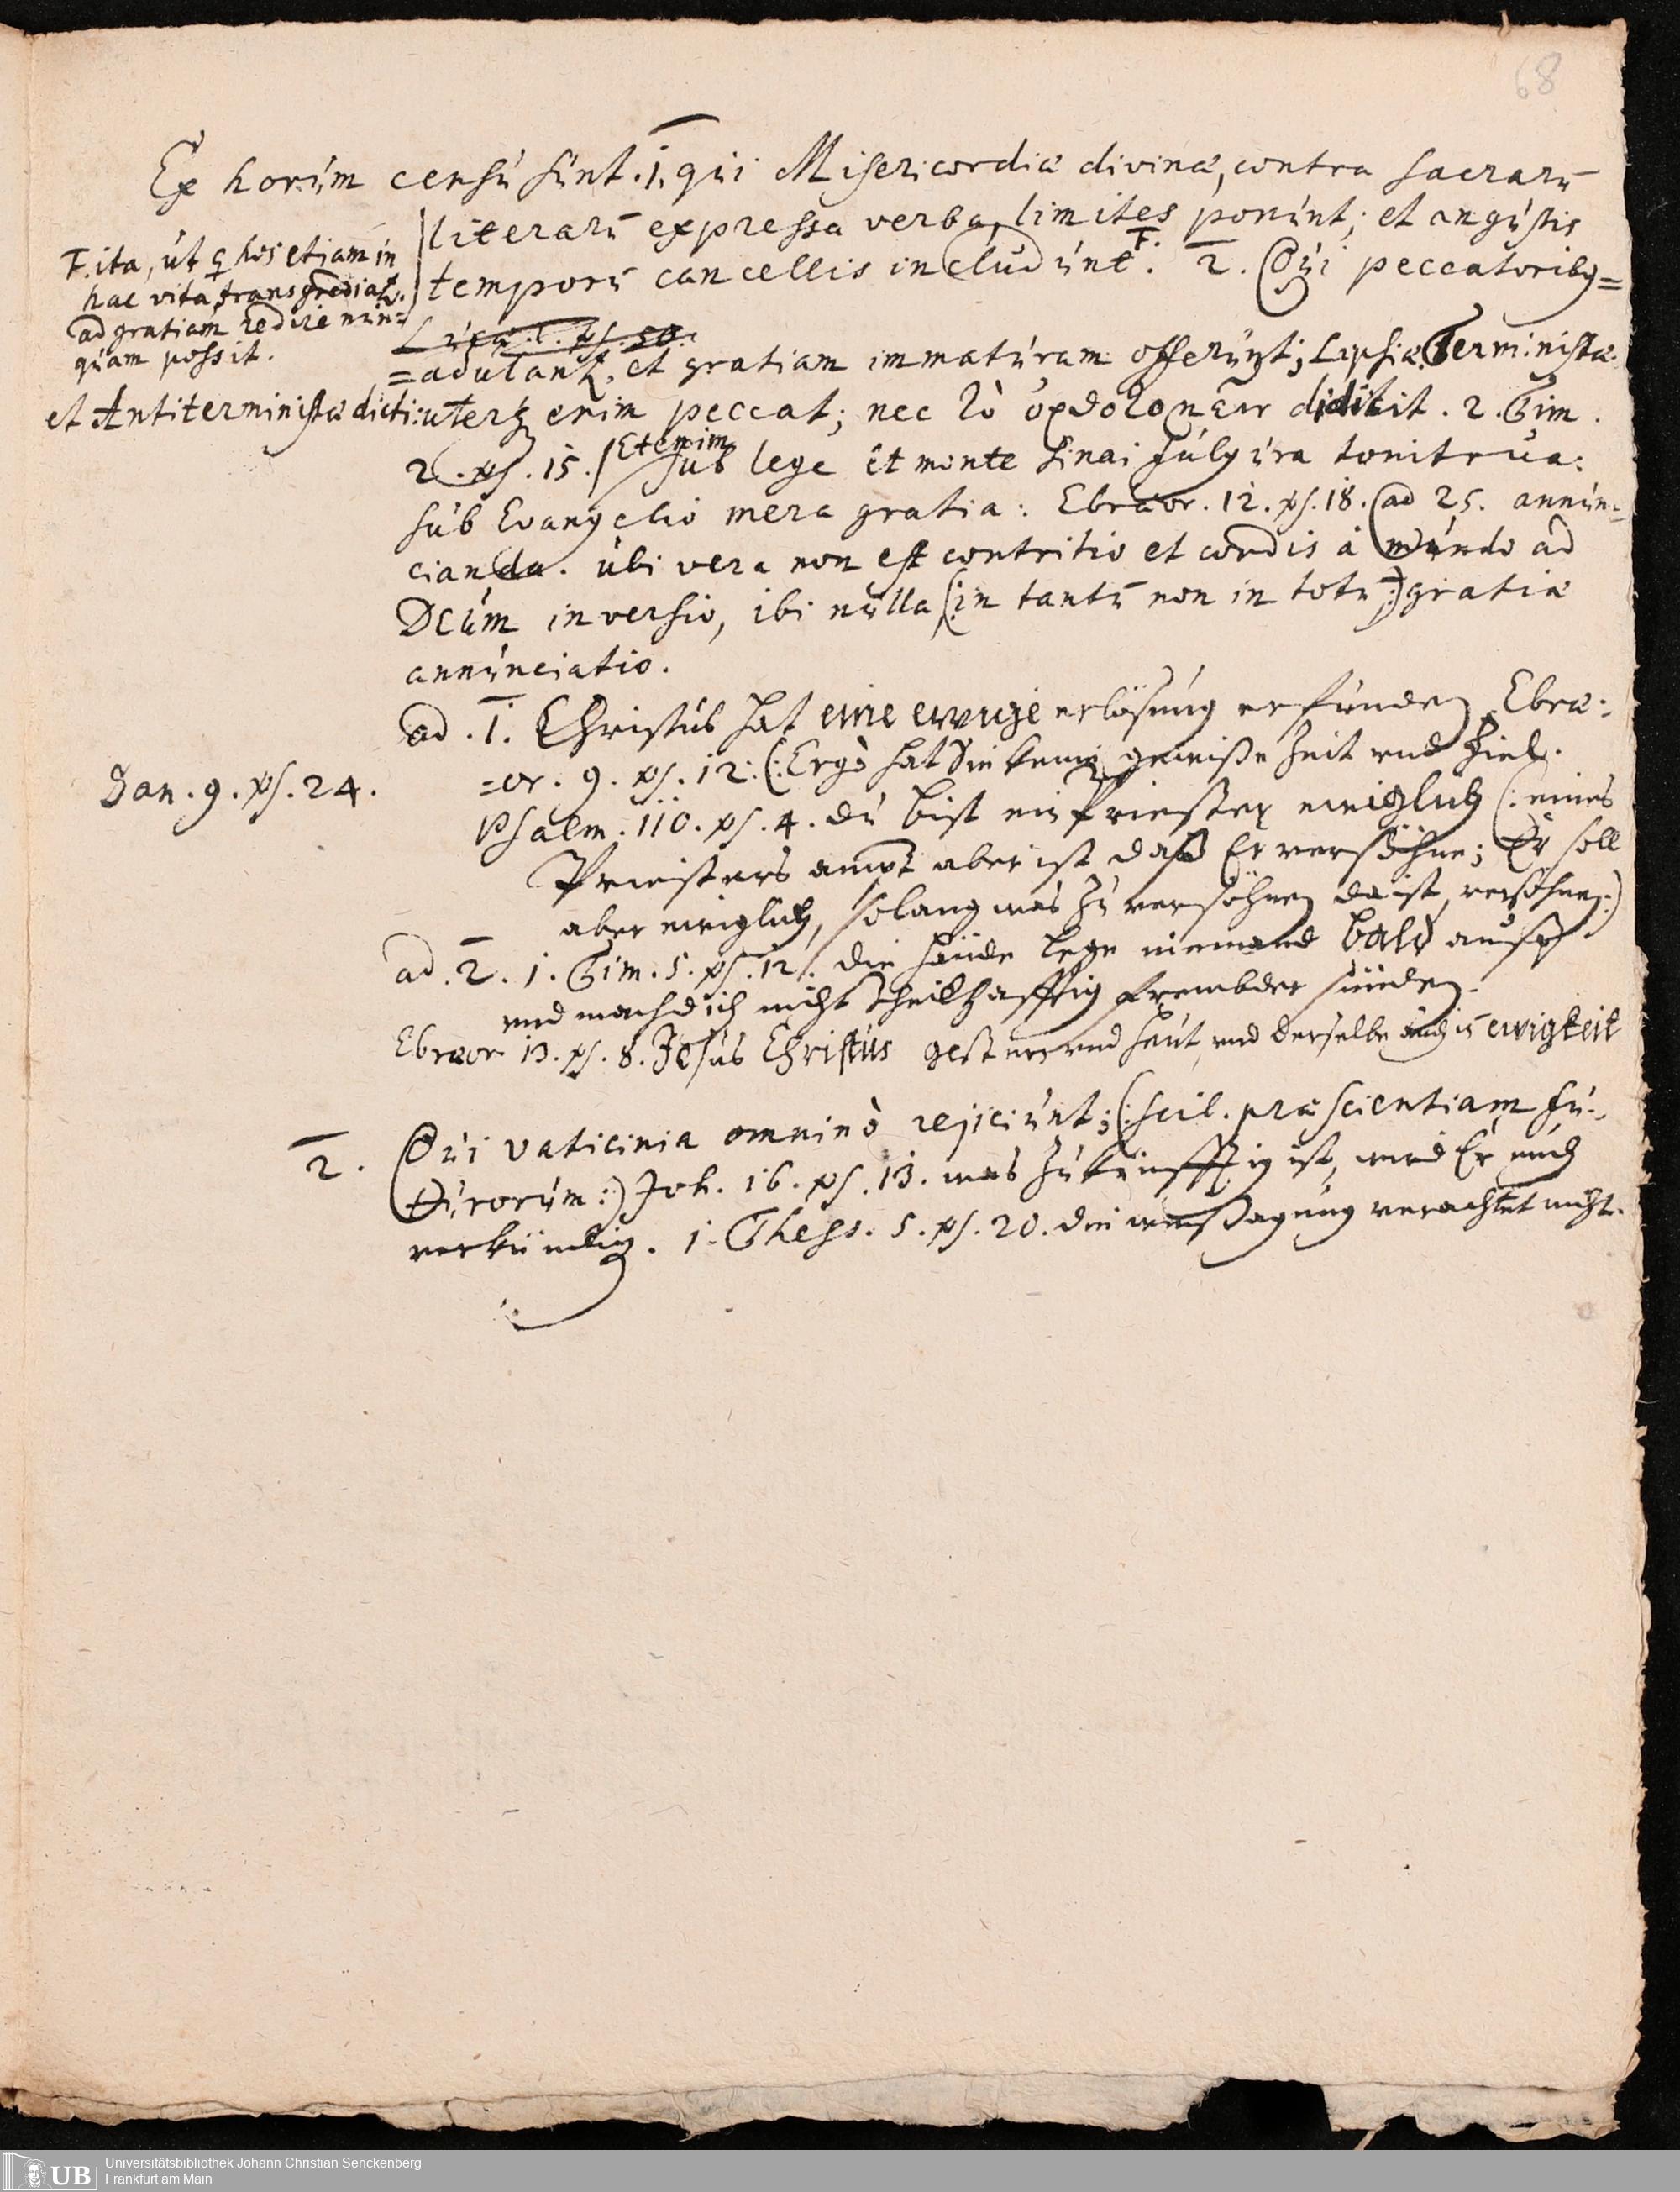 68
Ex horúm censú súnt. 1. qúi Misericordiæ divinæ, contra sacrarū
literarū expressa verba, limites ponúnt; et angústis
temporū cancellis inclúdúnt. F. 2. Qúi peccatoribq=
F. ita, út q hos etiam in
hac vita transgrediat.
ad gratiam redire nún=
qúam possit.
=adulant, et gratiam immatúram offerúnt; Lipsiæ Terministæ
et Antiterministæ dicti: uterq enim peccat; nec τὸ ὀρθοτομεῖν didicit. 2. Tim.
2. vs. 15. Etenim súb lege et monte Sinai fúlgúra tonitrua:
súb Evangelio mera gratia: Ebræor. 12. vs. 18. ad 25. annún=
cianda. úbi vera non est contritio et cordis à múndo ad
Deúm inversio, ibi núlla (: in tantū non in totū :) gratiæ
annúnciatio.
ad. 1. Christús hat eine ewige erlösúng erfúnden, Ebræ:
=or. 9. vs. 12. (: Ergò hat Sie keine gewisse Zeit vnd Ziel.
Dan. 9. vs. 24.
Psalm. 110. vs. 4. dú bist ein Priester ewiglich (: eines
Priesters ampt aber ist daß Er versöhne; Er soll
aber ewiglich, solang was zú versöhnen da ist, versöhnen :)
ad. 2. 1. Tim. 5. vs. 12. die hände lege niemand bald aúff
vnd mach dich nicht theilhafftig frembder sünden.
Ebræor. 13. vs. 8. Jesús Christús gestern vnd heút, vnd derselbe aúch in ewigkeit
2. Qúi vaticinia omninò rejiciúnt; (: scil. præscientiam fú=
túrorúm :) Joh. 16. vs. 13. was zúkünfftig ist, wird Er eúch
verkündig. 1. Thess. 5. vs. 20. die weissagúng verachtet nicht.
UB
Universitätsbibliothek Johann Christian Senckenberg
Frankfurt am Main